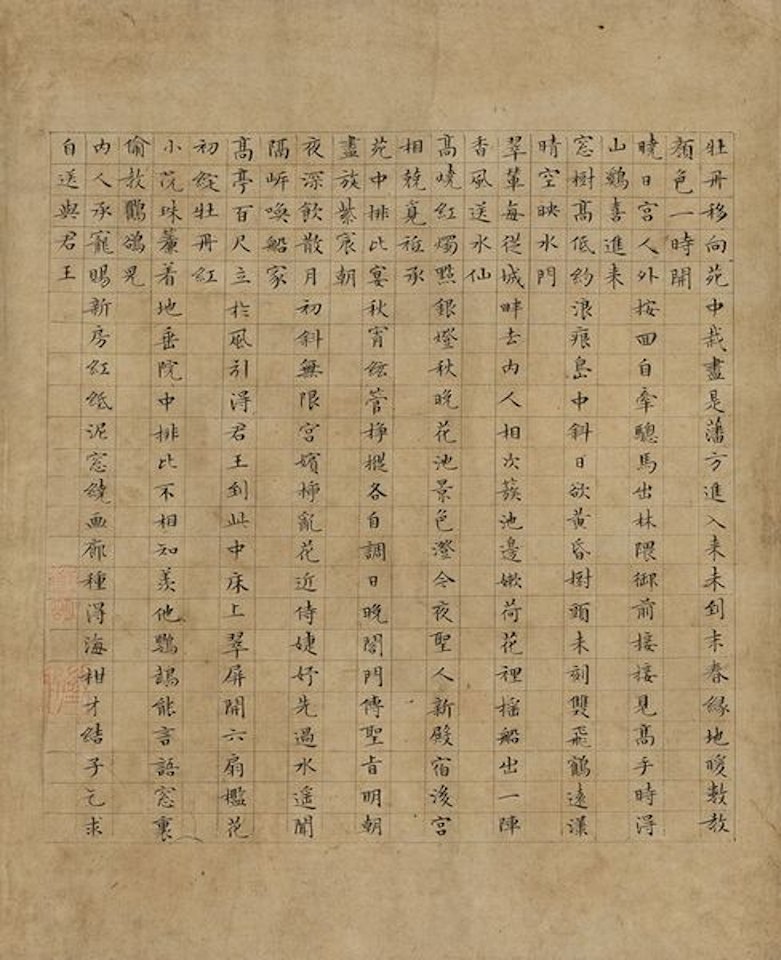 牡丹移向苑中栽盡是藩方進入来未到末春緣地暖數教
顏色一時開
曉日宮人外按回自牽驄馬出林隈御前接接見高手時得
山鷄喜進来
窓樹高低約浪痕島中斜日欲黄昏樹頭木刻雙飛鶴遠漾
晴空映水門
翠輦每從城畔去内人相次簇池邊嫰荷花裡摇船出一陣
香風送水仙
高嶢紅燭點銀燈秋晚花池景色澄今夜聖人新殿宿後宮
相兢覓祗承
苑中排比宴秋宵絃管挣摐各自調日晚閤門傳聖旨明朝
盡族紫宸朝
夜深飲散月初斜無限宮嬪插亂花近侍婕妤先過水遥聞
隔岍喚船家
高亭百尺立於風引得君王到此中床上翠屏開六扇檻花
初綻牡丹紅
小院珠簾着地垂院中排比不相知羨他鸚鵡能言語窓裏
偷教鸜鵒兒
内人承寵賜新房紅紙泥窓繞画廊種得海柑才結子乞求
自送與君王